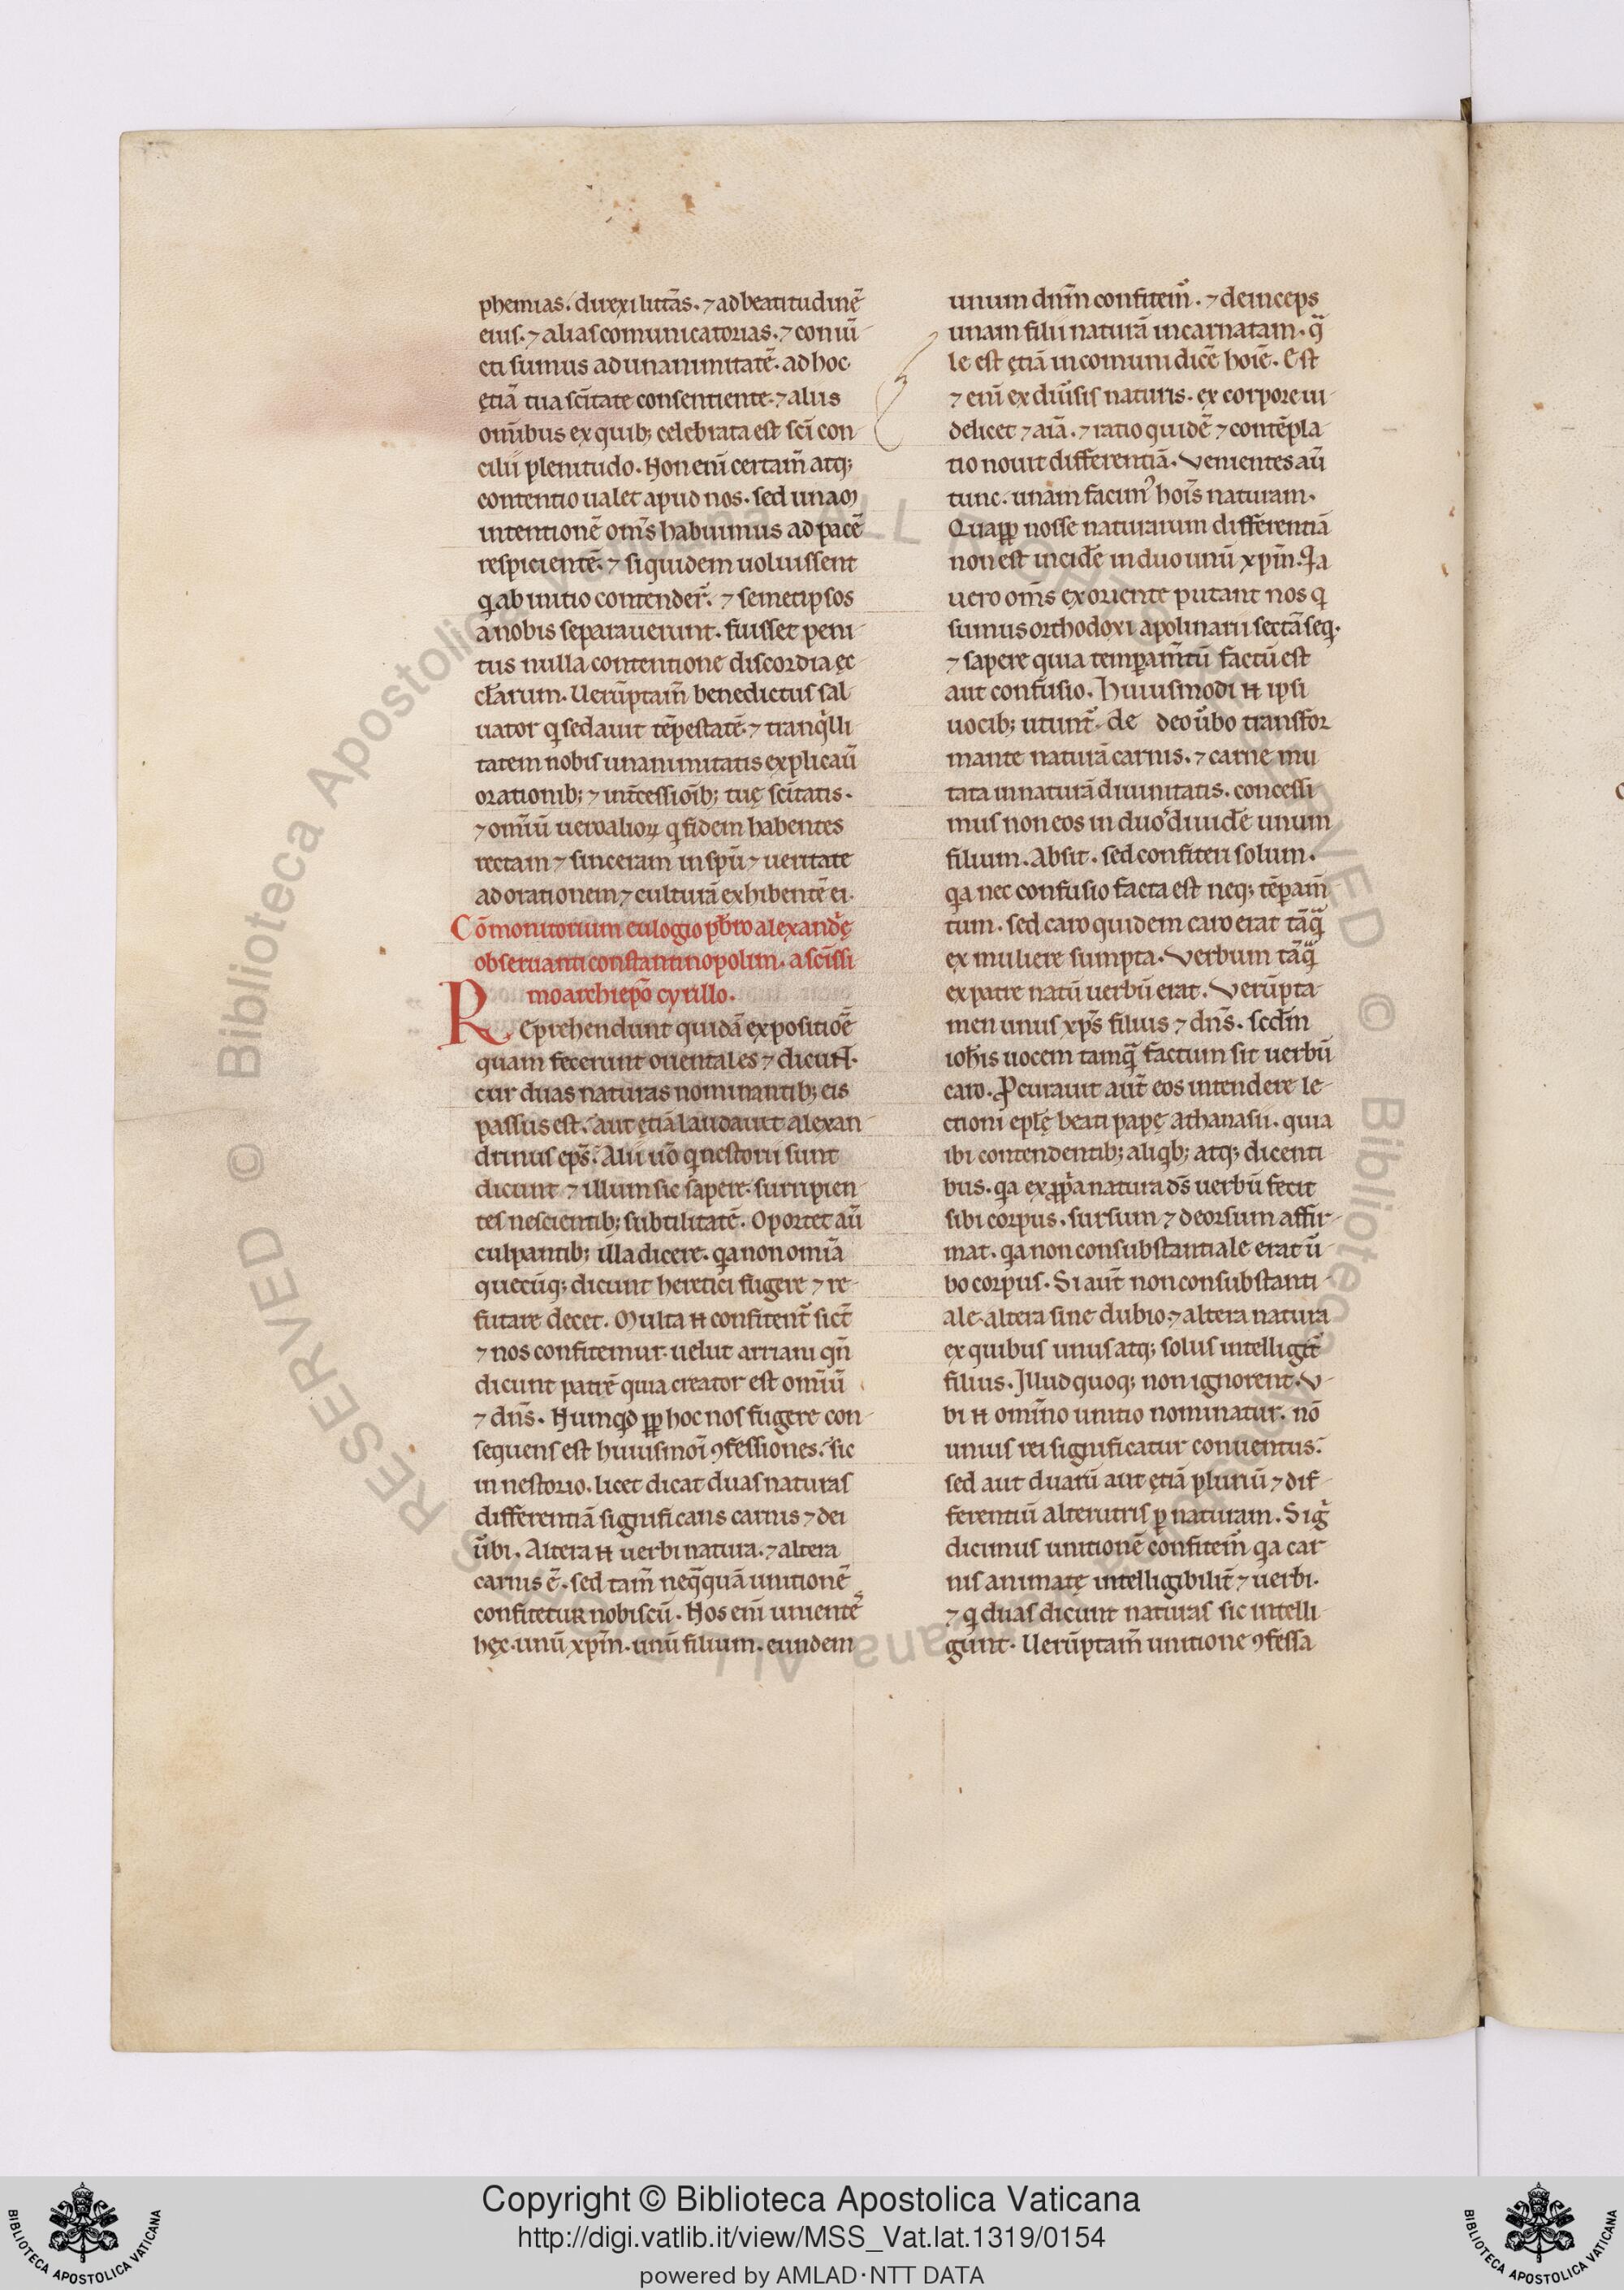 phemias. direxi litt̃as. ⁊ ad beatitudinẽ
eius. ⁊ alias comunicatorias. ⁊ coniũ
cti sumus ad unanimitatẽ. ad hoc
ętiã tua sc̃itate consentiente. ⁊ aliis
om̃ibus ex quib; celebrata est sc̃i con
cilii plenitudo. Non eni certam̃ atq;
contentio ualet apud nos. sed unam
intentionẽ om̃s habuimus ad pacẽ
respicientẽ. ⁊ siquidem uoluissent
q ab initio contender̃. ⁊ semetipsos
a nobis separauerunt. fuisset peni
tus nulla contentione discordia ęc
cl̃arum. Uerũptam̃ benedictus sal
uator q sedauit tẽpestatẽ. ⁊ tranqlli
tatem nobis unanimitatis explicaũ
orationib; ⁊ int̃cessioĩb; tuę sc̃itatis.
⁊ om̃iũ uero alioꝝ q fidem habentes
rectam ⁊ sinceram in sp̃u ⁊ ueritate
adorationem ⁊ culturã exhibentẽ ei.
Cõmonitorium eulogio p̃bro alexandr̃ę
obseruanti constantinopolim. a sc̃issi
mo archiep̃o cyrillo.
REprehendunt quidã expositioẽ
quam fecerunt orientales ⁊ dicunt.
cur duas naturas nominantib; eis
passus est. aut ętiã laudauit alexan
drinus ep̃s. Alii ũo q nestorii sunt
dicunt ⁊ illum sic sapere. surripien
tes nescientib; subtilitatẽ. Oportet aũ
culpantib; illa dicere. qa non om̃ia
quecũq; dicunt heretici fugere ⁊ re
futare decet. Multa n̄ confitent̃ sict̃
⁊ nos confitemur. uelut arriani qñ
dicunt patrẽ quia creator est om̃iũ
⁊ dñs. Nunqd ꝓp hoc nos fugere con
sequens est huiusmoĩ ꝯfessiones. sic
in nestorio. licet dicat duas naturas
differentiã significans carnis ⁊ dei
ũbi. Altera n̄ uerbi natura. ⁊ altera
carnis ẽ. sed tam̃ neq̃quã unitionẽ
confitetur nobiscũ. Nos eni unientẽs
hęc. unũ xp̃m. unũ filium. eundem
unum dñm confitem̃. ⁊ deinceps
unam filii naturã incarnatam. q̃
le est ętiã in comuni dicẽ hoĩe. Est
⁊ eni ex diũsis naturis. ex corpore ui
delicet ⁊ aĩa. ⁊ ratio quidẽ ⁊ contẽpla
tio nouit differentiã. Venientes aũ
tunc. unam facim̃ hoĩs naturam.
Quaꝓp nosse naturarum differentiã
non est incidẽ in duo unũ xp̃m. Ia
uero om̃s ex oriente putant nos q
sumus orthodoxi apolinarii sectã seq.
⁊ sapere quia temperam̃tũ factũ est
aut confusio. Huiusmodi n̄ ipsi
uocib; utunt̃. de deo ũbo transfor
mante naturã carnis. ⁊ carne mu
tata in naturã diuinitatis. concessi
mus non eos in duos diuidẽ unum
filium. Absit. sed confiteri solum.
qa nec confusio facta est neq; tẽpam̃
tum. sed caro quidem caro erat tãq̃
ex muliere sumpta. Verbum tãq̃
ex patre natũ uerbũ erat. Verũpta
men unus xp̃s filius ⁊ dñs. scdm̃
ioh̃is uocem tamq̃ factum sit uerbũ
caro. Ꝓcurauit aut̃ eos intendere le
ctioni ep̃lę beati papę athanasii. quia
ibi contendentib; aliqb; atq; dicenti
bus. qa ex ꝓp̃a natura d̃s uerbũ fecit
sibi corpus. sursum ⁊ deorsum affir
mat. qa non consubstantiale erat ũ
bo corpus. Si aut̃ non consubstanti
ale. altera sine dubio. ⁊ altera natura
ex quibus unus atq; solus intelligit̃
filius. Illud quoq; non ignorent. V
bi n̄ om̃ino unitio nominatur. nõ
unius rei significatur conuentus.
sed aut duarũ aut ętiã pluriũ ⁊ dif
ferentiũ alterutris ꝑ naturam. Si g̃
dicimus unitionẽ confitem̃ qa car
nis animatę intelligibilit̃ ⁊ uerbi.
⁊ q duas dicunt naturas sic intelli
gunt. Uerũptam̃ unitione ꝯfessa
Copyright © Biblioteca Apostolica Vaticana
http://digi.vatlib.it/view/MSS_Vat.lat.1319/0154
powered by AMLAD·NTT DATA
BIBLIOTECA APOSTOLICA VATICANA
BIBLIOTECA APOSTOLICA VATICANA